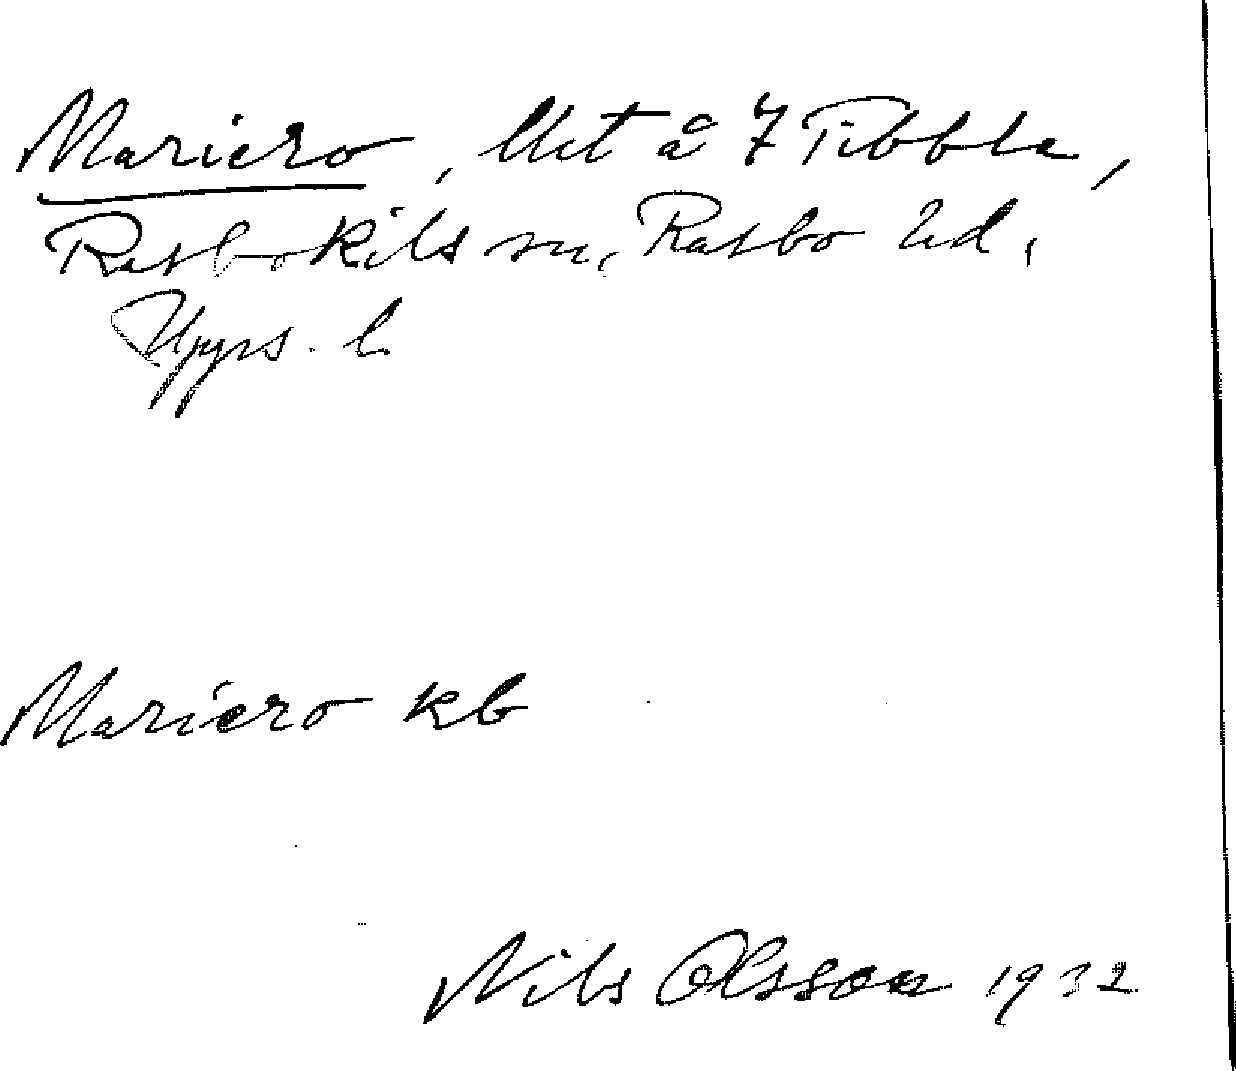 Mariero, llet å 7 Tibble,
Rasbokils sn, Rasbo hd,
Upps. l.
Mariero kb
Nils Olsson 1932